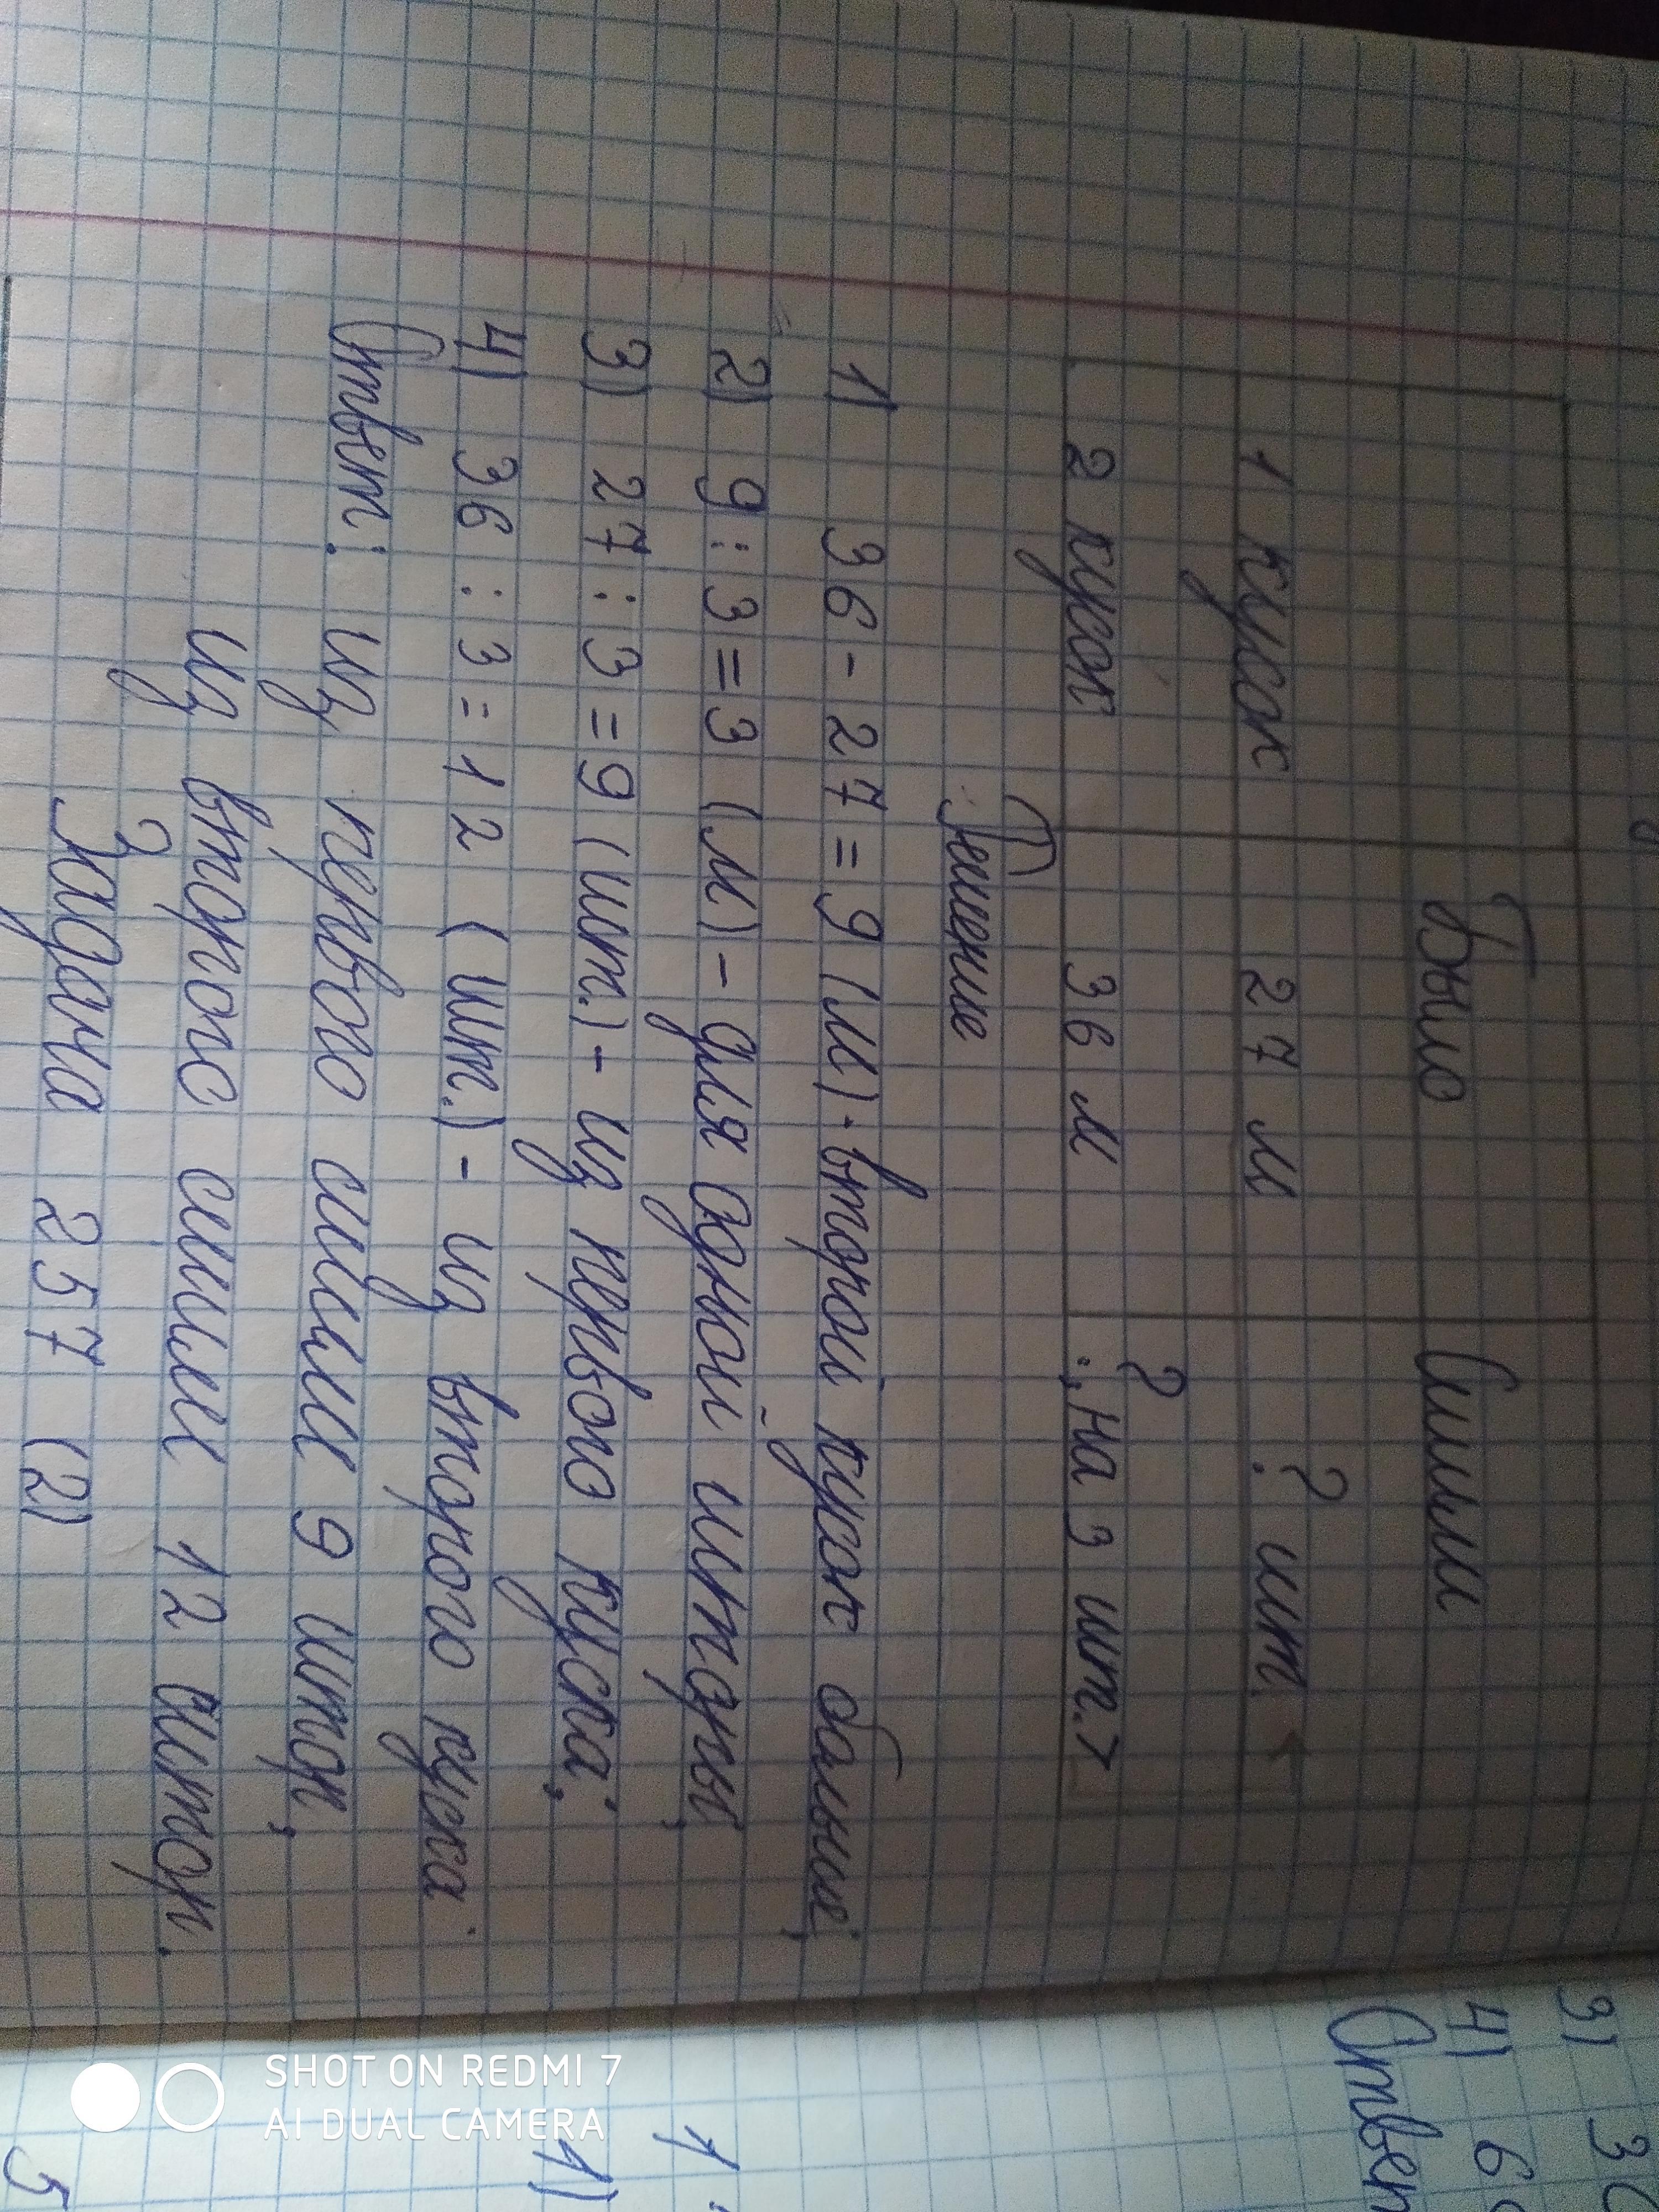 Было Сшили
1 кусок 27 м ? шт. <
2 кусок 36 м ?, на 3 шт. >
Решение
1) 36 - 27 = 9 (м) - второй кусок больше;
2) 9 : 3 = 3 (м) - для одной шторы;
3) 27 : 3 = 9 (шт.) - из первого куска;
4) 36 : 3 = 12 (шт.) - из второго куска
Ответ: из первого сшили 9 штор,
из второго сшили 12 штор.
Задача 257 (2)
3) 3
4) 6
Ответ
1
1)
5
SHOT ON REDMI 7
AI DUAL CAMERA